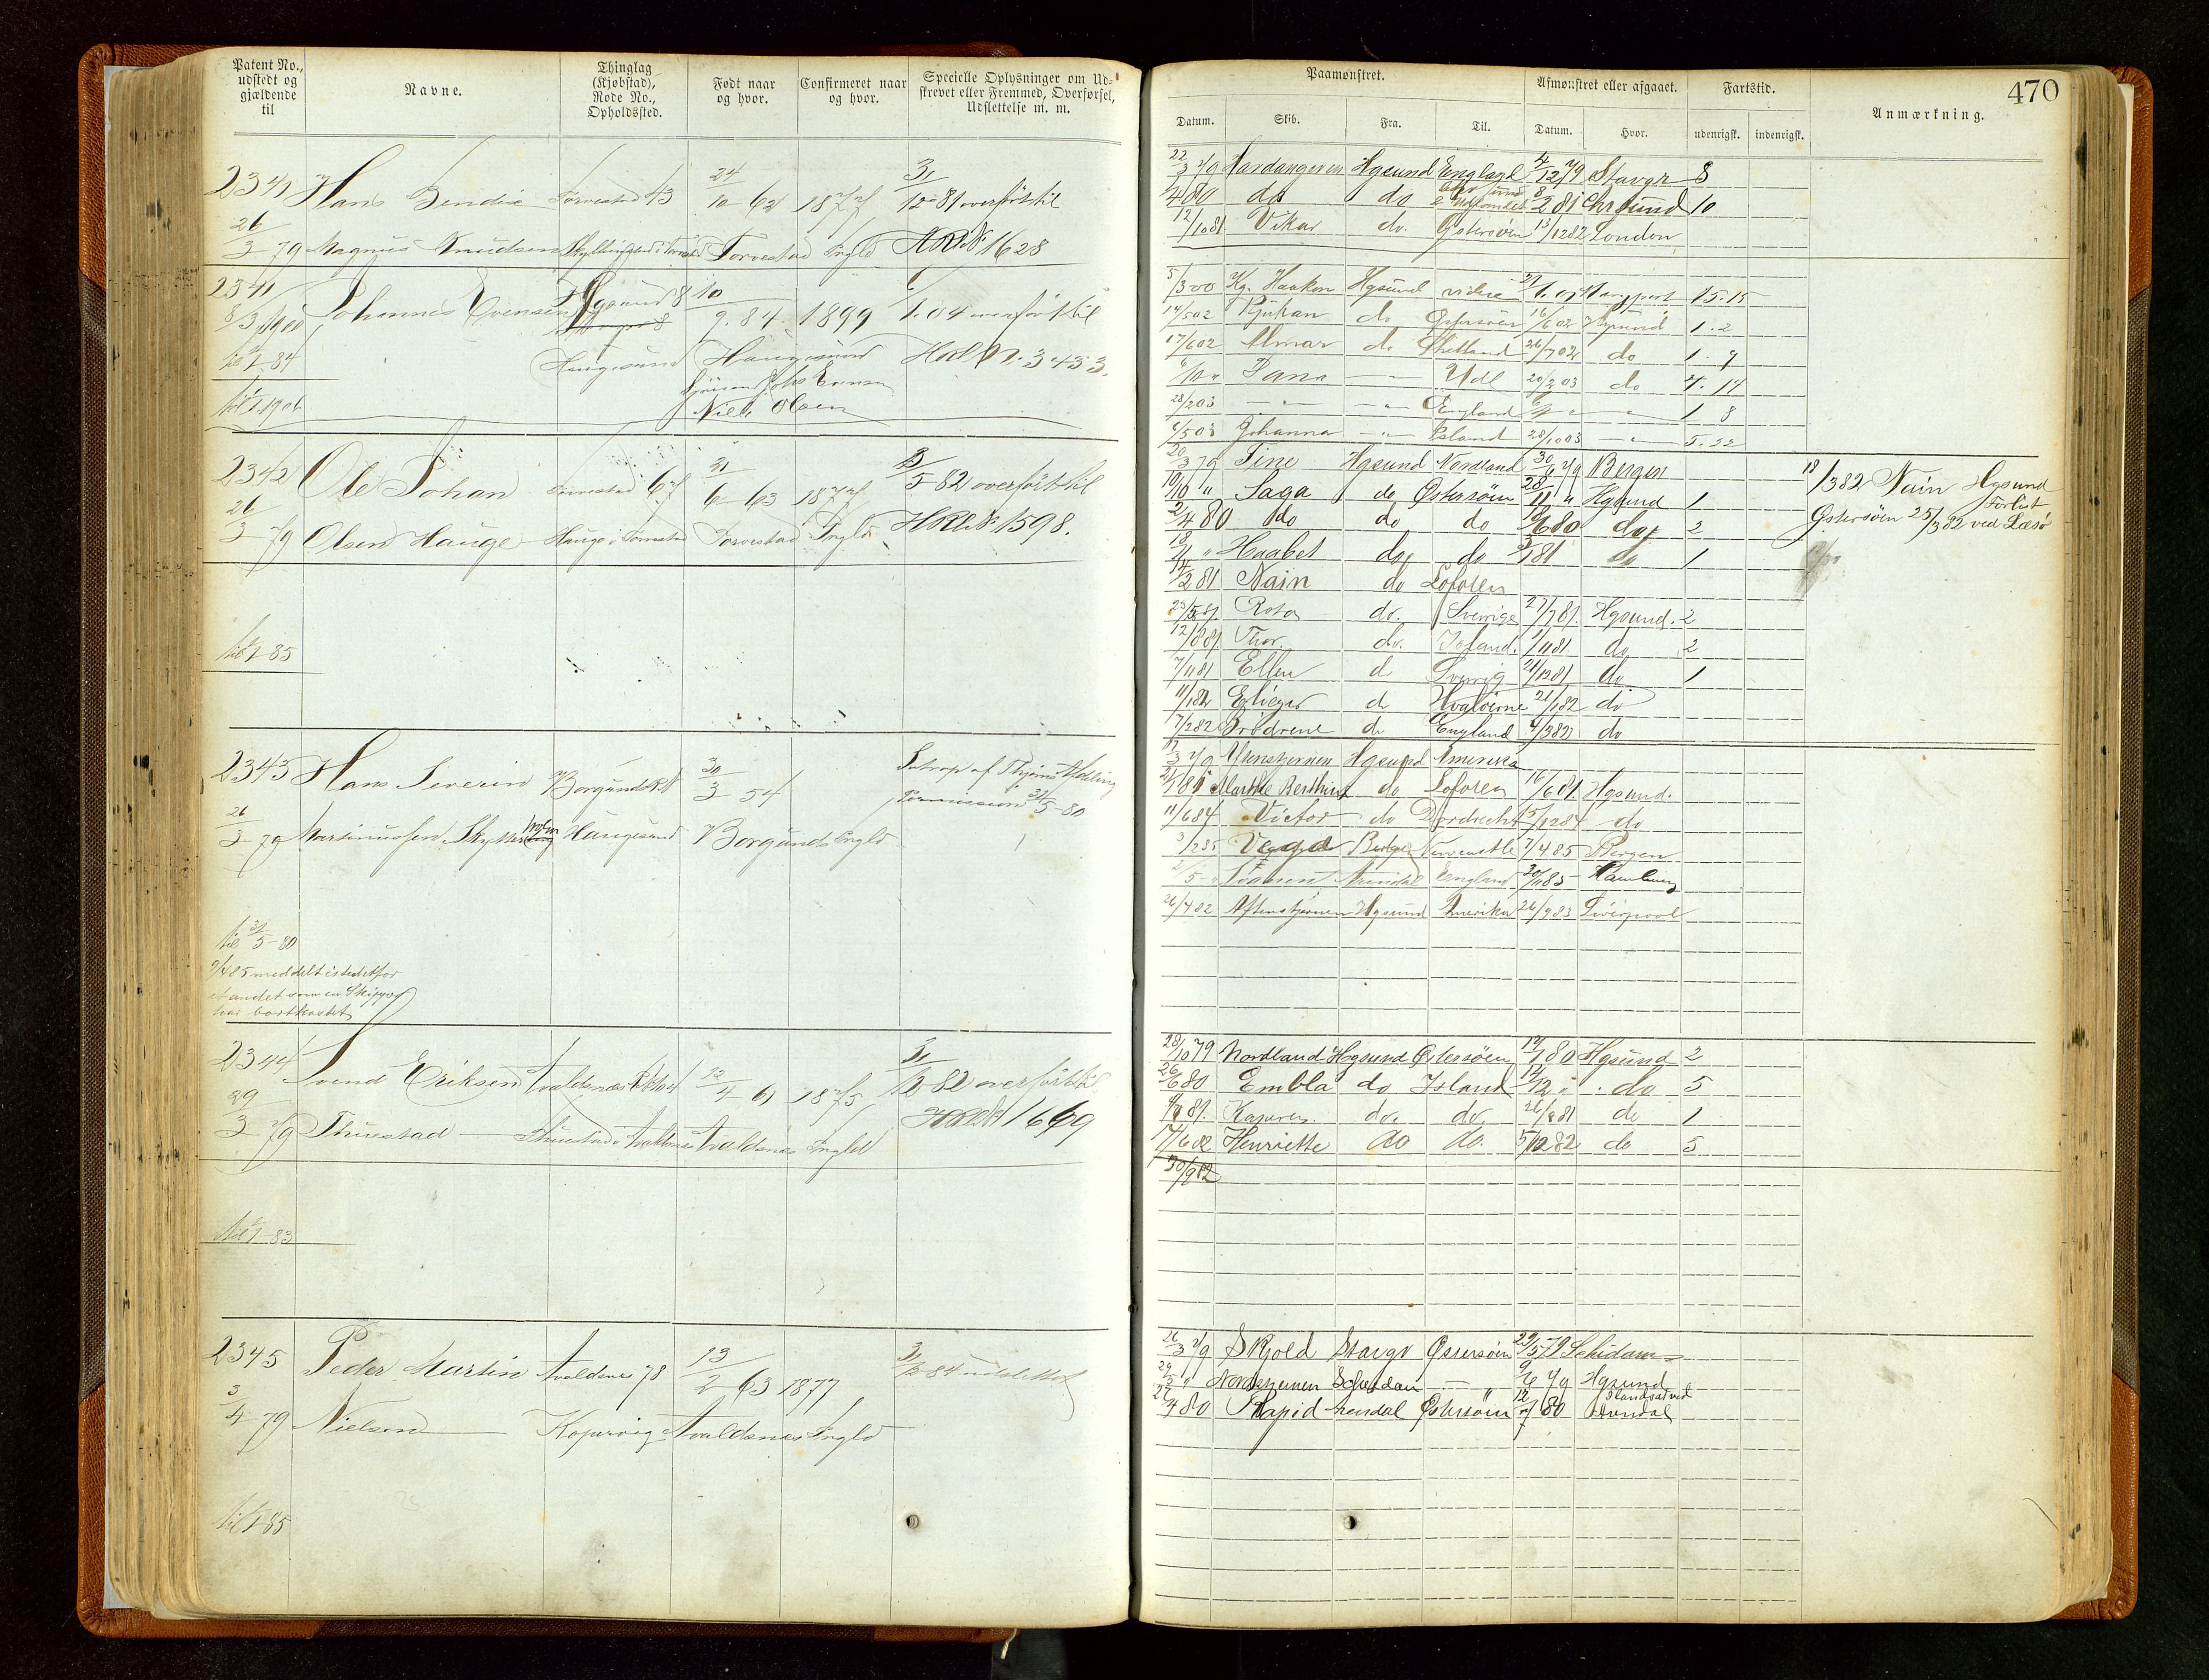 Patent No., udstedt og gjældende til
Navne.
Thinglag (Kjøbstad), Rode No., Opholdssted.
Født naar og hvor.
Confirmeret naar og hvor.
Specielle Oplysninger om Udskrevet eller Fremmed, Overførsel, Udslettelse m. m.
2341 Hans Bendix Torvestad 43 24/10 62 1877 31/12 81 overført til
26/3 79 Magnus Knudsen Torvestad Ingld HRN 1628
2341 Johannes Evensen Hgsund 8 10/9.84 1899 1.04 overført til
8/3 1900
Haugesund Haugesund 3433.
Niels Olsen
til 1.1906
2342 Ole Johan Torvestad 67 21/6 63 1877 5 82 overført til
26/3 79 Olsen Hauge Hauge i Torvestad Torvestad Ingld HRN 1598.
til 1-85
2343 Hans Severin Borgund 30/3 54
26/3 79 Martinussen Haugesund Borgund Ingld
Permission 31/5-80
til 31/5-80
9/4 85 meddelt istedetfor
et andet som en Skipper
har bortkastet
2344 Svend Eriksen Avaldsnes 12/4 61 1875 31/12 82 overført til
29/3 79 Thuestad Thuestad i Avaldsnes Avaldsnes Ingld 1669
til 1-83
2345 Peder Martin Avaldsnes 78 13/2 63 1877 31/12 84 udslettet
3/4 79 Nielsen Kopervig Avaldsnes Ingld
til 1-85
470
Paamønstret.
Afmønstret eller afgaaet.
Fartstid.
Anmærkning.
Datum. Skib. Fra. Til. Datum. Hvor. udenrigsk. indenrigsk.
22/3 79 Hardangeren Hgsund England 4/12 79 Stavgr 8
4 80 do do 8/2 81 Chrsund 10
12/10 81 Vikar do. Østersøen 13/12 82 London
5/3 00 Kg. Haakon Hgsund videre 15.15
14/5 02 Rjukan do Østersøen 16/6 02 Hgsund 1. 2
17/6 02 Almar do Shetland 26/7 02 do 1. 9
6/10 " Dana — Udl 20/2 03 do 4. 14
28/2 03 — " — England 1 8
6/5 03 Johanna — " — Island 28/10 03 — " — 5. 22
20/3 79 Fine Hgsund Nordland 30/6 79 Bergen
10/10 " Saga do Østersøen 28/11 " Hgsund 1
2/4 80 do do do 6 80 do 2
18/11 " Haabet do do 81 do 1
14/2 81 Nain do Lofoten
23/5 81 Rota do. Sverrige 27/7 81. Hgsund. 2
12/8 81 Thor do. Island. 1/11 81. do 2
7/11 81 Ellen do Sverrig 21/12 81 do 1
11/1 82 Eliezer do Hvaløerne 21/1 82 do
7/2 82 Brødrene do England 4/3 82 do
18/3 82 Nain Hgsund
Forlist
Østersøen 25/3 82 ved Læsø
3 79 Aftenstjernen Hgsund Amerika
21/1 81 Marthe Berthine do Lofoten 16/6 81. Hgsund.
11/6 84 Victor do Dordrecht 5/12 84 do
3/2 85 Vega Bergen Newcastle 7/4 85 Bergen
2/5 " Arendal England 30/11 85 Hamburg
26/4 82 Aftenstjernen Hgsund Amerika 26/9 83 Liverpool
28/10 79 Nordland Hgsund Østersøen 12/1 80 Hgsund 2
26/6 80 Embla do Island 14/12 " do 5
81. do. do 26/8 81 do 1
17/6 82 Henriette do do. 5/12 82 do 5
30/9 82
26/3 79 Skjold Stavgr Østersøen 29/5 79 Schidam
29/5 " Nordstjernen Schedam — 9/6 79 Hgsund
27/4 80 Rapid Arendal Østersøen 12/7 80 Arendal